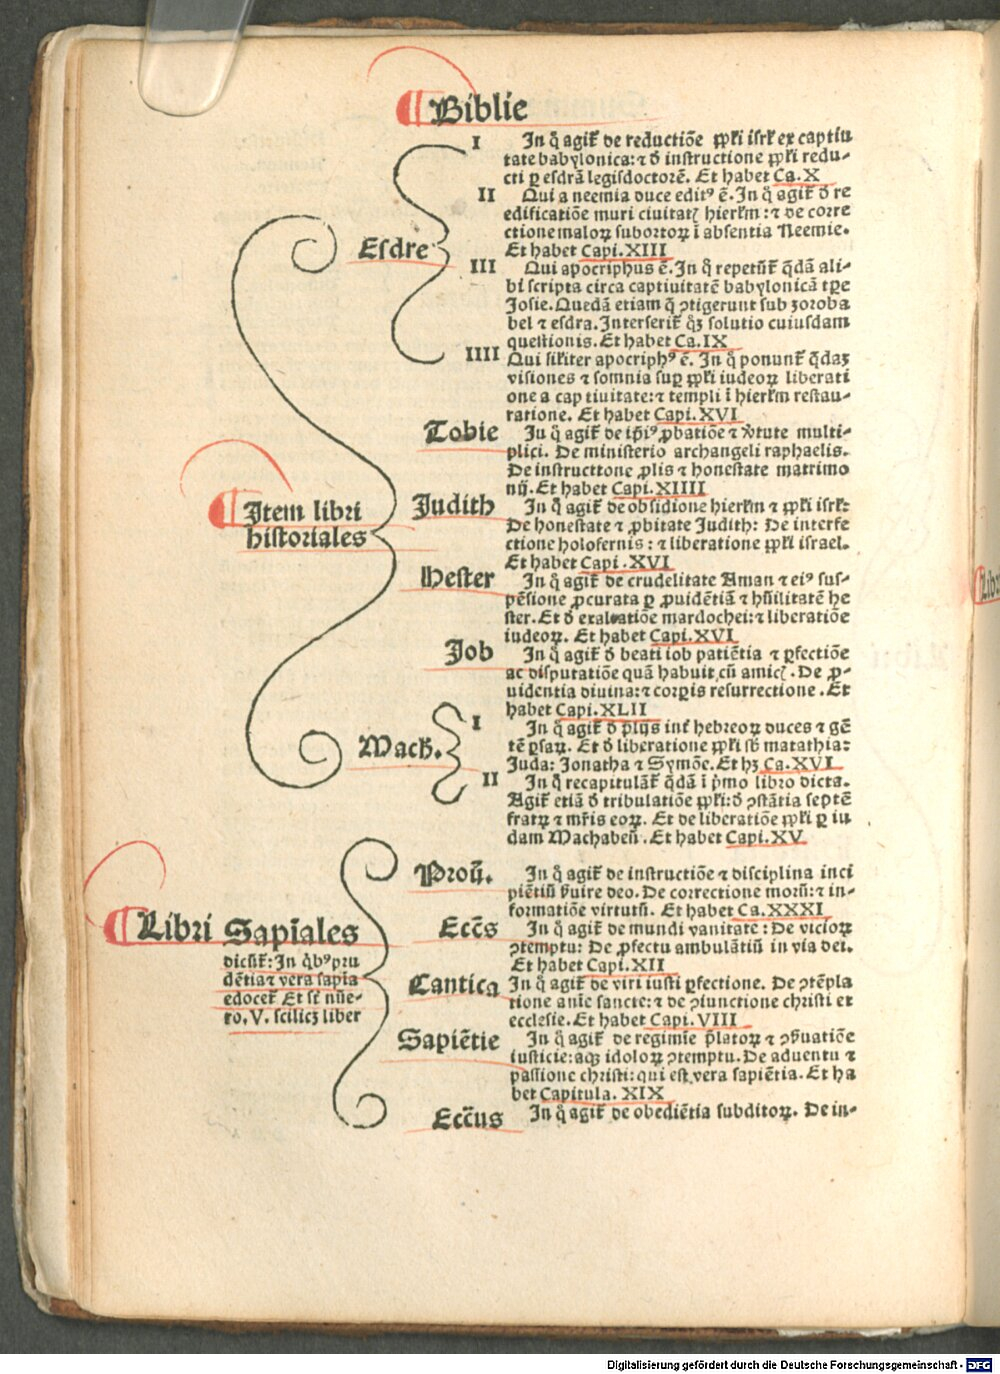 Biblie
I In q̄ agit̄ de reductiōe ꝓpl̄i isrl̄ ex captiu
tate babylonica: ⁊ d̄ instructione ꝓpl̄i redu-
cti ꝑ esdrā legisdoctorē. Et habet Ca. X
II Qui a neemia duce editꝰ ē. In q̄ agit̄ d̄ re
edificatiōe muri ciuitatꝭ hierl̄m : ⁊ de corre
ctione maloꝝ subortoꝝ ī absentia Neemie.
Et habet Capi. XIII
Esdre
III Qui apocriphus ē. In q̄ repetūt̄ q̄dā ali-
bi scripta circa captiuitatē babylonicā tꝑe
Josie. Quedā etiam q̄ ꝯtigerunt sub zoroba
bel ⁊ esdra. Interserit̄ q̄ꝫ solutio cuiusdam
questionis. Et habet Ca. IX
IIII Qui sil̄iter apocriphꝰ ē. In q̄ ponunt̄ q̄daꝫ
visiones ⁊ somnia suꝑ ꝓpl̄i iudeoꝝ liberati
one a cap tiuitate: ⁊ templi ī hierl̄m restau-
ratione. Et habet Capi. XVI
Tobie Ju q̄ agit̄ de ip̄iꝰ ꝓbatiōe ⁊ v̄tute multi-
plici. De ministerio archangeli raphaelis.
De instructtone ꝓlis ⁊ honestate matrimo
nij. Et habet Capi. XIIII
Item libri
historiales
Judith In q̄ agit̄ de obsidione hierl̄m ⁊ ꝓpl̄i isrl̄:
De honestate ⁊ ꝓbitate Judith: De interfe
ctione holofernis : ⁊ liberatione ꝓpl̄i israel.
Et habet Capi . XVI
Hester In q̄ agit̄ de crudelitate Aman ⁊ eiꝰ sus-
pēsione ꝓcurata ꝑ ꝓuidētiā ⁊ hūilitatē he
ster. Et d̄ exaltatiōe mardochei: ⁊ liberatiōe
iudeoꝝ. Et habet Capi. XVI
Job In q̄ agit̄ d̄ beati iob patiētia ⁊ ꝑfectiōe
ac disputatiōe quā habuit cū amicꝭ. De ꝓ-
uidentia diuina: ⁊ corꝑis resurrectione . Et
habet Capi. XLII
Mach̄.
I In q̄ agit̄ d̄ p̄lijs int̄ hebreoꝝ duces ⁊ gē
tē ꝑsaꝝ. Et d̄ liberatione ꝓpl̄i sb̄ matathia:
Juda: Jonatha ⁊ Symōe. Et hꝫ Ca. XVI
II In q̄ recapitulāt̄ q̄dā ī p̄mo libro dicta.
Agit̄ etiā d̄ tribulatiōe ꝓpl̄i: d̄ ꝯstātia septē
fratꝝ ⁊ mr̄is eoꝝ. Et de liberatiōe ꝓpl̄i ꝑ iu
dam Machabeū . Et habet Capi. XV
Prou̅. In q̄ agit̄ de instructiōe ⁊ disciplina inci
piētiū ẜuire deo. De correctione morū: ⁊ in-
formatiōe virtutū. Et habet Ca. XXXI
Libri Sapiales
dicūt̄: In q̄bꝰ pru
dētia ⁊ vera sapia
edocet̄ Et st̄ nūe-
ro. V. scilicꝫ liber
Ecc̄s In q̄ agit̄ de mundi vanitate : De vicioꝝ
ꝯtemptu: De ꝓfectu ambulātiū in via dei.
Et habet Capi. XII
Cantica In q̄ agit̄ de viri iusti ꝑfectione. De ꝯtēpla
tione anīe sancte: ⁊ de ꝯiunctione christi et
ecclesie. Et habet Capi. VIII
Sapiētie In q̄ agit̄ de regimīe p̄latoꝝ ⁊ ꝯẜuatiōe
iusticie: atqꝫ idoloꝝ ꝯtemptu. De aduentu ⁊
passione christi: qui est vera sapiētia. Et ha
bet Capitula. XIX
Ecc̄us In q̄ agit̄ de obediētia subditoꝝ. De in-
Digitalisierung gefördert durch die Deutsche Forschungsgemeinschaft - DFG